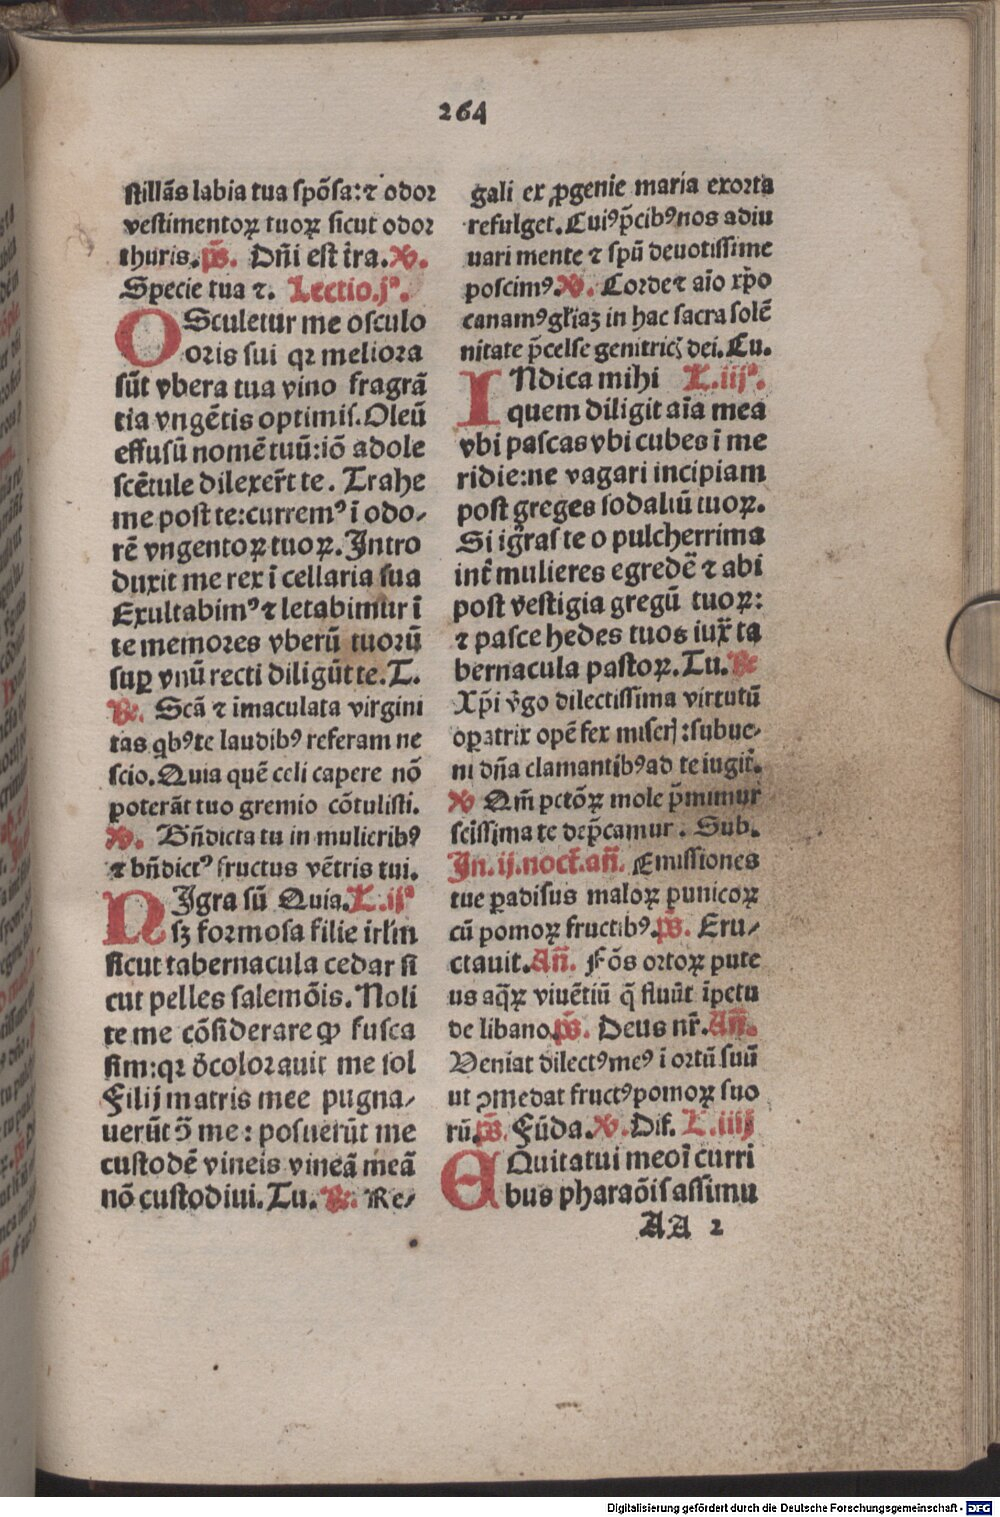 264
stillās labia tua spōsa: ⁊ odor
vestimentoꝝ tuoꝝ sicut odor
thuris. ps̄. Dn̄i est t̄ra. ꝟ.
Specie tua ⁊. Lectio.jᵃ.
OSculetur me osculo
oris sui qꝛ meliora
sūt vbera tua vino fragrā
tia vngētis optimis. Oleū
effusū nomē tuū: iō adole
scētule dilexer̄t te. Trahe
me post te: curremꝰ ī odo-
rē vngentoꝝ tuoꝝ. Intro
duxit me rex ī cellaria sua
Exultabimꝰ ⁊ letabimur ī
te memores vberū tuorū
suꝑ vnū recti diligūt te. T.
℟. Scā ⁊ imaculata virgini
tas qͥbꝰ te laudibꝰ referam ne
scio. Quia quē celi capere nō
poterāt tuo gremio cōtulisti.
ꝟ. Bn̄dicta tu in mulieribꝰ
⁊ bn̄dictꝰ fructus vētris tui.
NIgra sū Quia. L.ijᵃ
sꝫ formosa filie irl̄m
sicut tabernacula cedar si
cut pelles salemōis. Noli
te me cōsiderare ꝙ fusca
sim: qꝛ dͤcolorauit me sol
Filij matris mee pugna-
uerūt ↄ̄ me: posuerūt me
custodē vineis vineā meā
nō custodiui. Tu. ℟. Re-
gali ex ꝓgenie maria exorta
refulget. Cuiꝰ p̄cibꝰ nos adiu
uari mente ⁊ spū deuotissime
poscimꝰ. ꝟ. Corde ⁊ aīo xp̄o
canamꝰ gl̄iaꝫ in hac sacra solē
nitate p̄celse genitricꝭ dei. Cu.
INdica mihi L.iijᵃ.
quem diligit aīa mea
vbi pascas vbi cubes ī me
ridie: ne vagari incipiam
post greges sodaliū tuoꝝ.
Si igͣras te o pulcherrima
int̄ mulieres egredē ⁊ abi
post vestigia gregū tuoꝝ:
⁊ pasce hedes tuos iux̄ ta
bernacula pastoꝝ. Tu. ℟
Xp̄i v̄go dilectissima virtutū
oꝑatrix opē fer miserj: subue-
ni dn̄a clamantibꝰ ad te iugit̄.
ꝟ Qm̄ pctōꝝ mole p̄mimur
scissima te dep̄camur. Sub.
In.ij.noct̄.an̄. Emissiones
tue ꝑadisus maloꝝ punicoꝝ
cū pomoꝝ fructibꝰ. ps̄. Eru-
ctauit. An̄. Fōs ortoꝝ pute
us aq̄ꝝ viuētiū q̄ fluūt īpetu
de libano. ps̄. Deus nr̄. An̄.
Veniat dilectꝰ meꝰ ī ortū suū
ut ↄmedat fructꝰ pomoꝝ suo
rū. ps̄. Fūda. ꝟ. Dif. L.iiij
EQuitatui meo ī curri
bus pharaōis assimu
AA 2
Digitalisierung gefördert durch die Deutsche Forschungsgemeinschaft - DFG